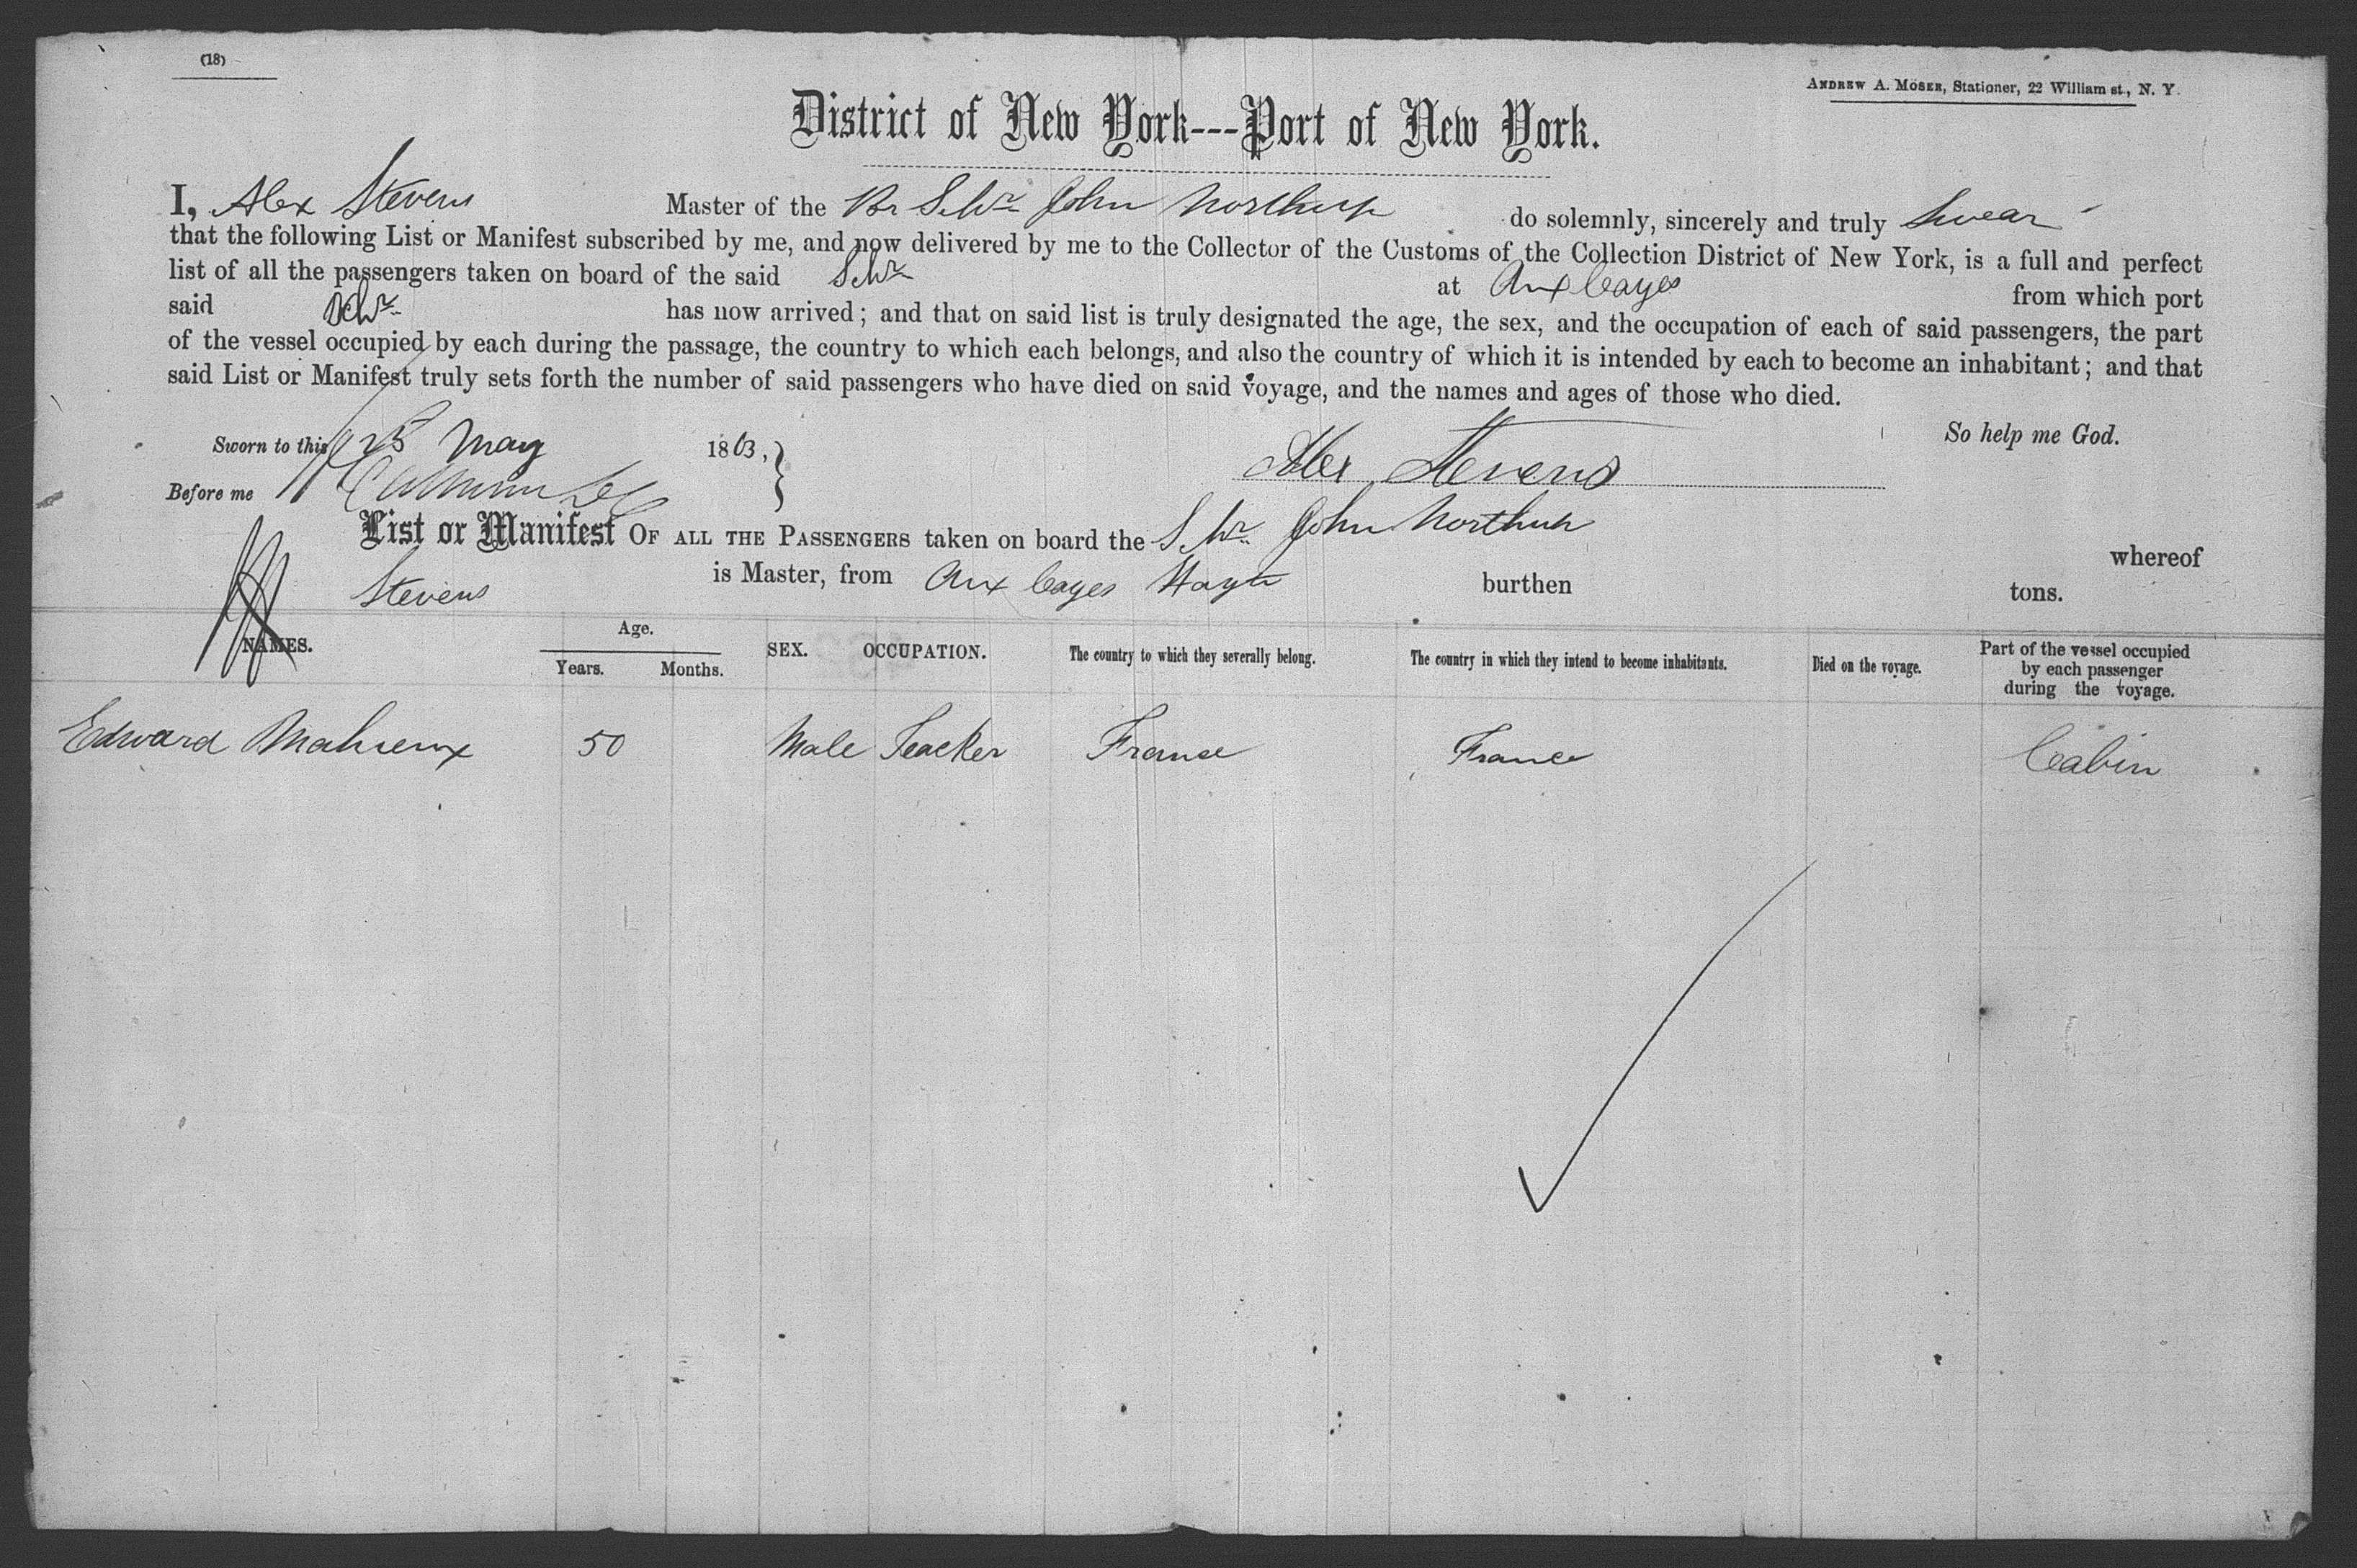 (18)
ANDREW A. MOSER, Stationer, 22 William st., N. Y.
District of New York---Port of New York.
I, Alex Stevens Master of the Br Schr John Northup do solemnly, sincerely and truly Swear
that the following List or Manifest subscribed by me, and now delivered by me to the Collector of the Customs of the Collection District of New York, is a full and perfect
list of all the passengers taken on board of the said Schr at Aux Cayes from which port
said Schr has now arrived; and that on said list is truly designated the age, the sex, and the occupation of each of said passengers, the part
of the vessel occupied by each during the passage, the country to which each belongs, and also the country of which it is intended by each to become an inhabitant; and that
said List or Manifest truly sets forth the number of said passengers who have died on said voyage, and the names and ages of those who died.
So help me God.
Sworn to this 25 May 1863, Alex Stevens
Before me
List or Manifest OF ALL THE PASSENGERS taken on board the Schr John Northup whereof
Stevens is Master, from Aux Cayes Hayti burthen tons.
NAMES. Age. Years. Months. SEX. OCCUPATION. The country to which they severally belong. The country in which they intend to become inhabitants. Died on the voyage. Part of the vessel occupied by each passenger during the voyage.
Edward Mahieux 50 Male Teacher France France Cabin